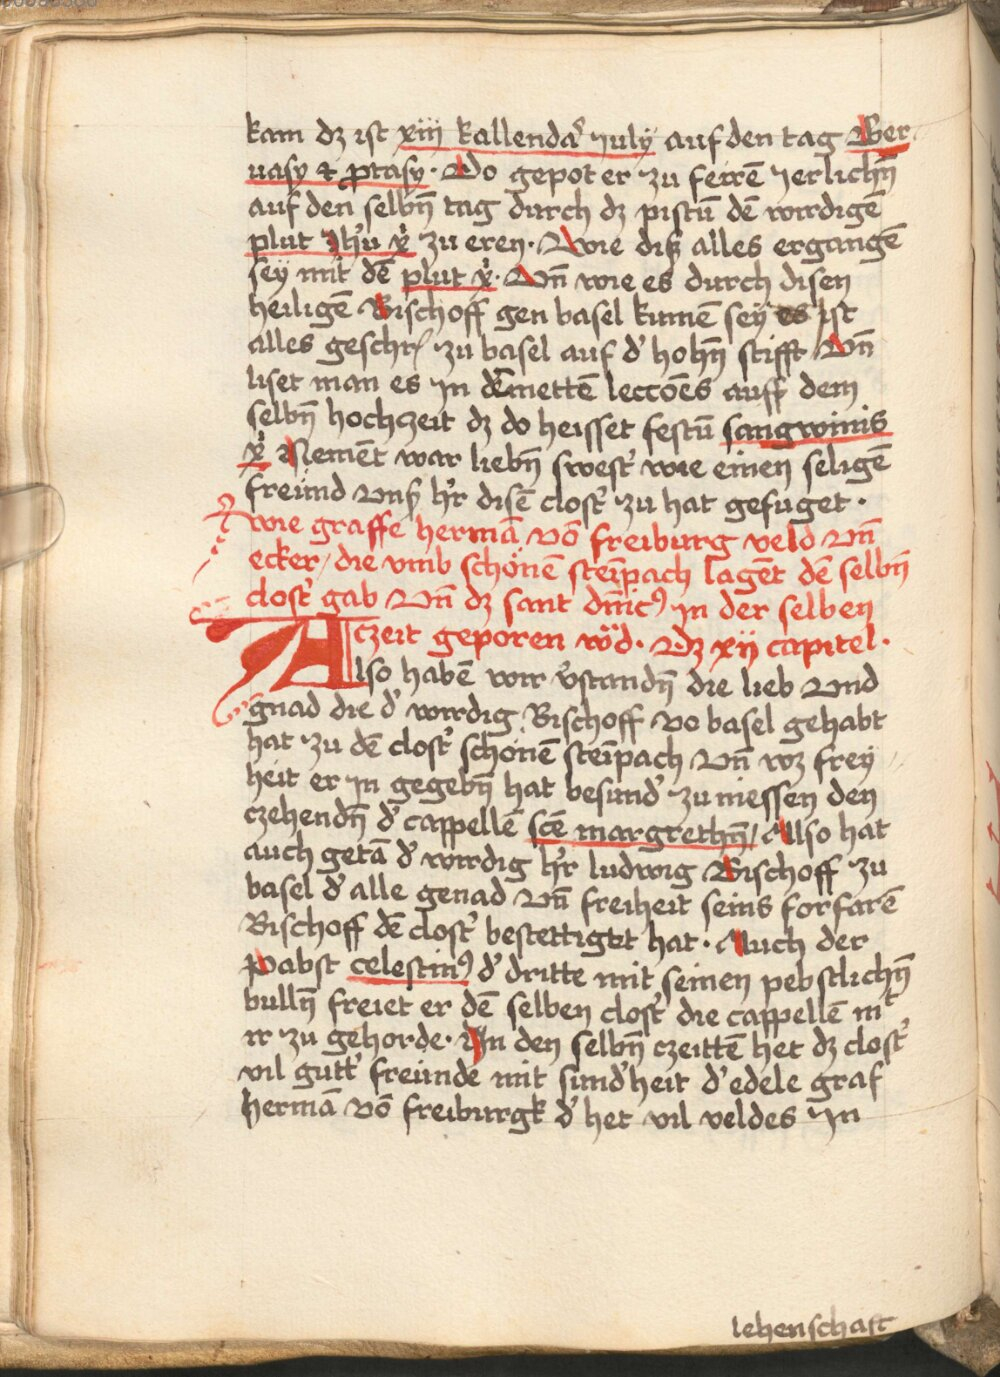 kam dz ist xiij kallendaꝛ᷑ July auf den tag Ger
uasy & ꝓtasy · Do gepot er zu ferrē Jerlichn̄
auf den selbn̄ tag durch dz pistū dē wirdigē
plut Jhu᷑ x᷑ zu eren · Wie diß alles ergangē
sey mit dē plut x᷑ · Vn̄ wie es durch disen
heiligē Bischoff gen basel kumē sey es ist
alles geschr᷑ zu basel auf d᷑ hohn̄ stifft Vn̄
liset man es Jn dē mettē leccōes auff dem
selbn̄ hochzeit dz do heisset festū sangwinis
x᷑ Nemēt war liebn̄ swest᷑ wie einen seligē
freund vns h᷑r disē clost᷑ zu hat gefuget ·
wie graffe hermā vō freiburg veld vn̄
ecker / die vmb schönē steīpach lagēt dē selbn̄
clost᷑ gab Vn̄ dz sant dn̄icꝰ Jn der selben
czeit geporen wöd · Dz xij capitel ·
Also habē wir v᷑standn̄ die lieb Vnd
gnad die d᷑ wirdig Bischoff vo basel gehabt
hat zu dē clost᷑ schönē steīpach Vn̄ wz frey
heit er Jn gegebn̄ hat besund᷑ zu niessen den
czehendn̄ d᷑ cappellē scē margrethn̄ / Also hat
auch getā d᷑ wirdig h᷑r ludwig Bischoff zu
basel d᷑ alle genad Vn̄ freiheit seins forfarē
Bischoff dē clost᷑ bestettiget hat · Auch der
Pabst celestinꝰ d᷑ dritte mit seinen pebstlichn̄
bulln̄ freiet er dē selben clost᷑ die cappellē mt
ir zu gehorde · Jn den selbn̄ czeittē het dz clost᷑
vil gutt᷑ freunde mit sund᷑heit d᷑ edele graf
hermā vō freiburgk d᷑ het vil veldes Jn
lehenschaft